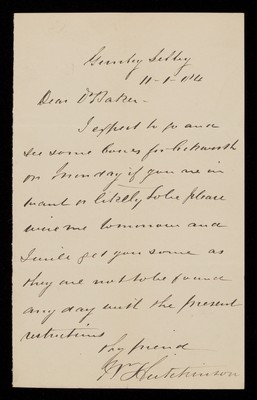 Gunby Selby
11-1-04
Dear Mr Baker -
I expect to go and
see some Cows for
on Monday if you are in
want or likely to be please
wire me tomorrow and
I will get you some as
they are not to be found
any day with the present
restrictions
thy friend
Wm Hutchinson